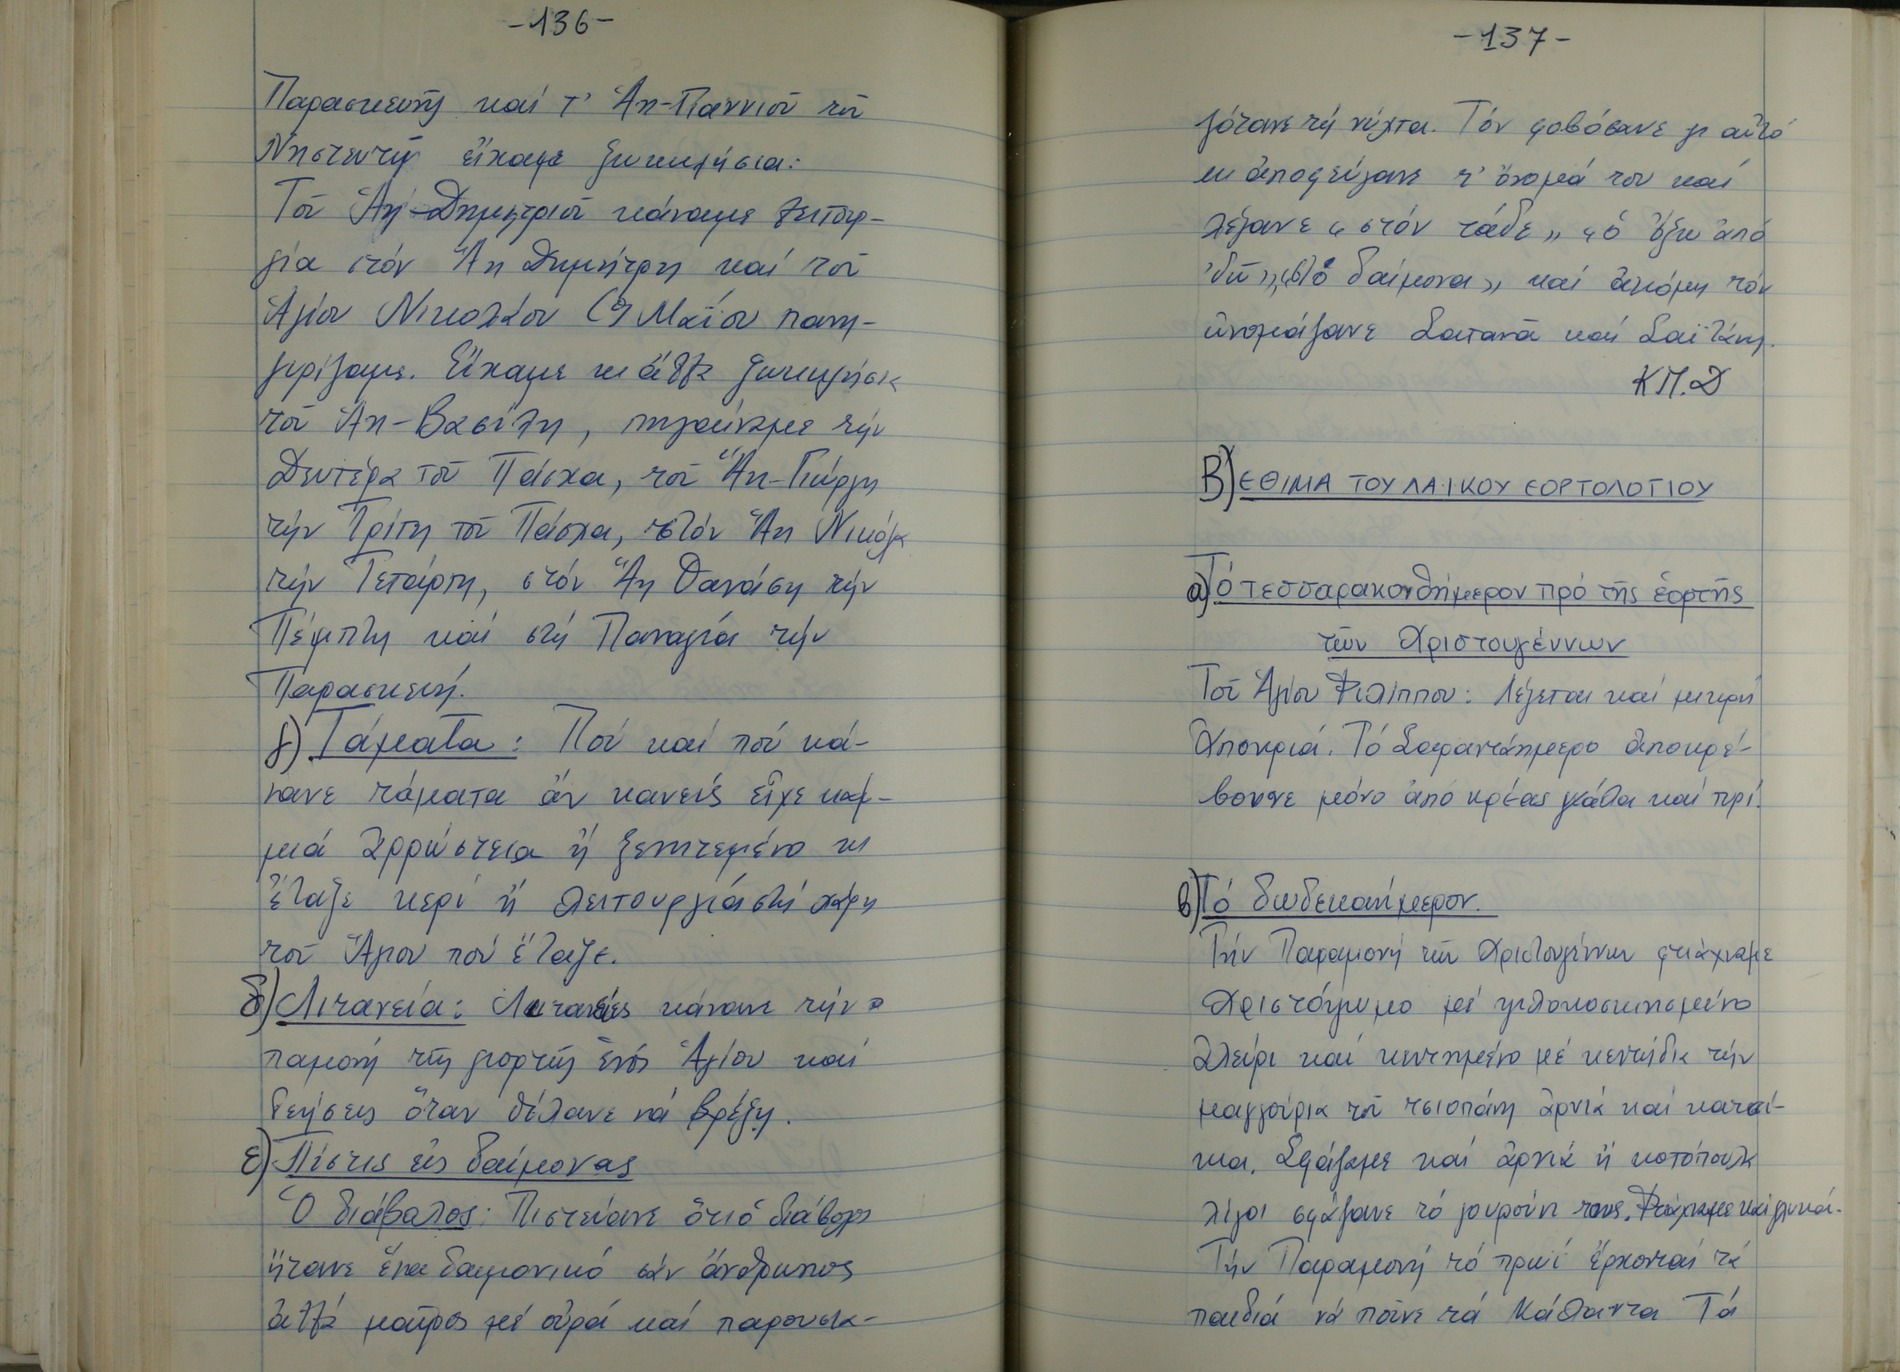 -136-
Παρασκευῆς καί τ' Ἁη-Γιαννιοῦ τοῦ
Νηστευτῆ εἴχαμε ξωκκλήσια:
Τοῦ Ἁη-Δημητριοῦ κάναμε λειτουρ-
γία στόν Ἁη Δημήτρη καί τοῦ
Ἁγίου Νικολάου (9 Μαΐου πανη-
γυρίζαμε. Εἴχαμε κι ἄλλα ξωκκλήσια
τοῦ Ἁη-Βασίλη, πηγαίναμε τήν
Δευτέρα τοῦ Πάσχα, τοῦ Ἁη-Γιώργη
τήν Τρίτη τοῦ Πάσχα, στόν Ἁη Νικόλα
τήν Τετάρτη, στόν Ἁη Θανάση τήν
Πέμπτη καί στή Παναγία τήν
Παρασκευή.
γ) Τάματα: Πού καί πού κά-
νανε τάματα ἄν κανείς εἶχε καμ-
μιά ἀρρώστεια ἤ ξενητεμένο κι
ἔταζε κερί ἤ λειτουργιά στή χάρη
τοῦ Ἁγίου πού ἔταζε.
δ) Λιτανεία: Λιτανείες κάνανε τήν
παμονή τῆς γιορτῆς ἑνός Ἁγίου καί
δεήσεις ὅταν θέλανε νά βρέξη.
ε) Πίστις εἰς δαίμονας
Ὁ διάβολος: Πιστεύανε ὅτι ὁ διάβολος
ἤτανε ἕνα δαιμονικό σάν ἄνθρωπος
ἀλλά μαῦρος μέ οὐρά καί παρουσια-
-137-
ζότανε τή νύχτα. Τόν φοβόσανε γι αὐτό
κι ἀποφεύγανε τ' ὄνομά του καί
λέγανε « στόν τάδε » « ὁ ὄξω ἀπό
'δῶ », «ὁ δαίμονα» καί ἀκόμη τόν
ὠνομάζανε Σατανᾶ καί Σαϊτάνη.
Κ.Π.Δ
Β) ΕΘΙΜΑ ΤΟΥ ΛΑΪΚΟΥ ΕΟΡΤΟΛΟΓΙΟΥ
α) Τό τεσσαρακονθήμερον πρό τῆς ἑορτῆς
τῶν Χριστουγέννων
Τοῦ Ἁγίου Φιλίππου: Λέγεται καί μικρή
Ἀποκριά. Τό Σαραντάημερο ἀποκρέ-
βουνε μόνο ἀπό κρέας γάλα καί τυρί.
β) Τό δωδεκαήμερον.
Τήν Παραμονή τῶν Χριστουγέννων φτιάχναμε
Χριστόψωμο μέ ψιλοκοσκινισμένο
ἀλεύρι καί κεντημένο μέ κεντίδια τήν
μαγγούρα τοῦ τσιοπάνη ἀρνιά καί κατσί-
κια. Σφάζαμε καί ἀρνιά ἤ κοτόπουλα
λίγοι σφάζανε τό γουρούνι τους. Φτιάχναμε καί γλυκά.
Τήν Παραμονή τό πρωί ἔρχονται τά
παιδιά νά ποῦνε τά Κάλαντα Τά